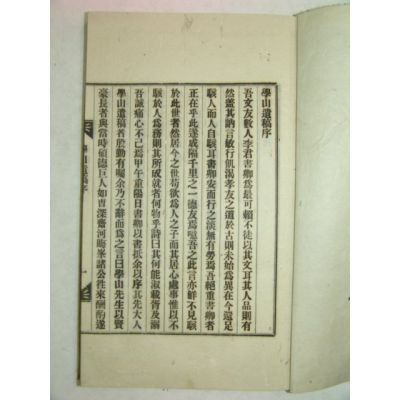 學山遺稿序
吾文友數人李君書卿爲最可賴不徒以其文耳其人品則有
然蓋其訥言敏行飢渴孝友之道於古則未始爲異在今還足
駭人而人自駭耳書卿安而行之淡無有勞焉吾絕重書卿者
正在乎此遂成隔千里之一德友焉噫吾之此言亦鮮不見駭
於此世者然居今之世苟欲爲人之子而其居心處事惟以不
駭於人爲務則其所成就者何物乎詩曰其何能淑載胥及溺
吾誠痛心不已焉甲午重陽日書卿以書抵余以序其先大人
學山遺稿者於勤有囑余乃不辭而爲之言曰學山先生以賢
豪長者與當時碩德巨人如曺深齋河晦峯諸公往來酬酌遂
學山遺稿序
一